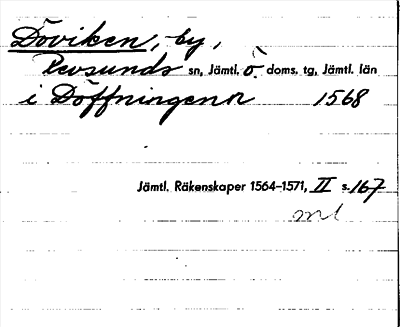 Döviken, by,
Revsunds sn, Jämtl. Ö. doms. tg, Jämtl. län
i Döffningenn 1568
Jämtl. Räkenskaper 1564–1571, II s. 167